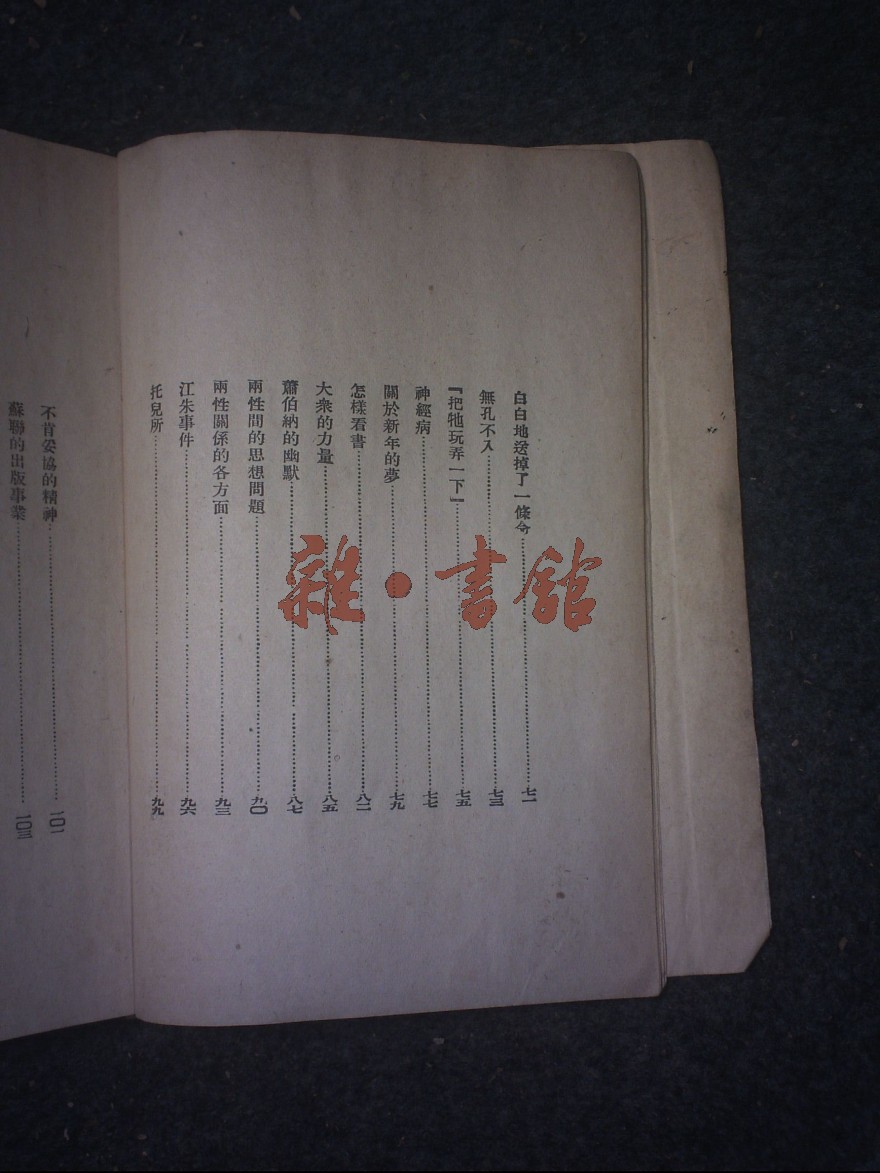 白白地送掉了一條命……七一
無孔不入……七三
『把牠玩弄一下』……七五
神經病……七七
關於新年的夢……七九
怎樣看書……八二
大衆的力量……八五
蕭伯納的幽默……八七
兩性間的思想問題……九〇
兩性關係的各方面……九三
江朱事件……九六
托兒所……九九
不肯妥協的精神……一〇一
蘇聯的出版事業……一〇三
雜·書館